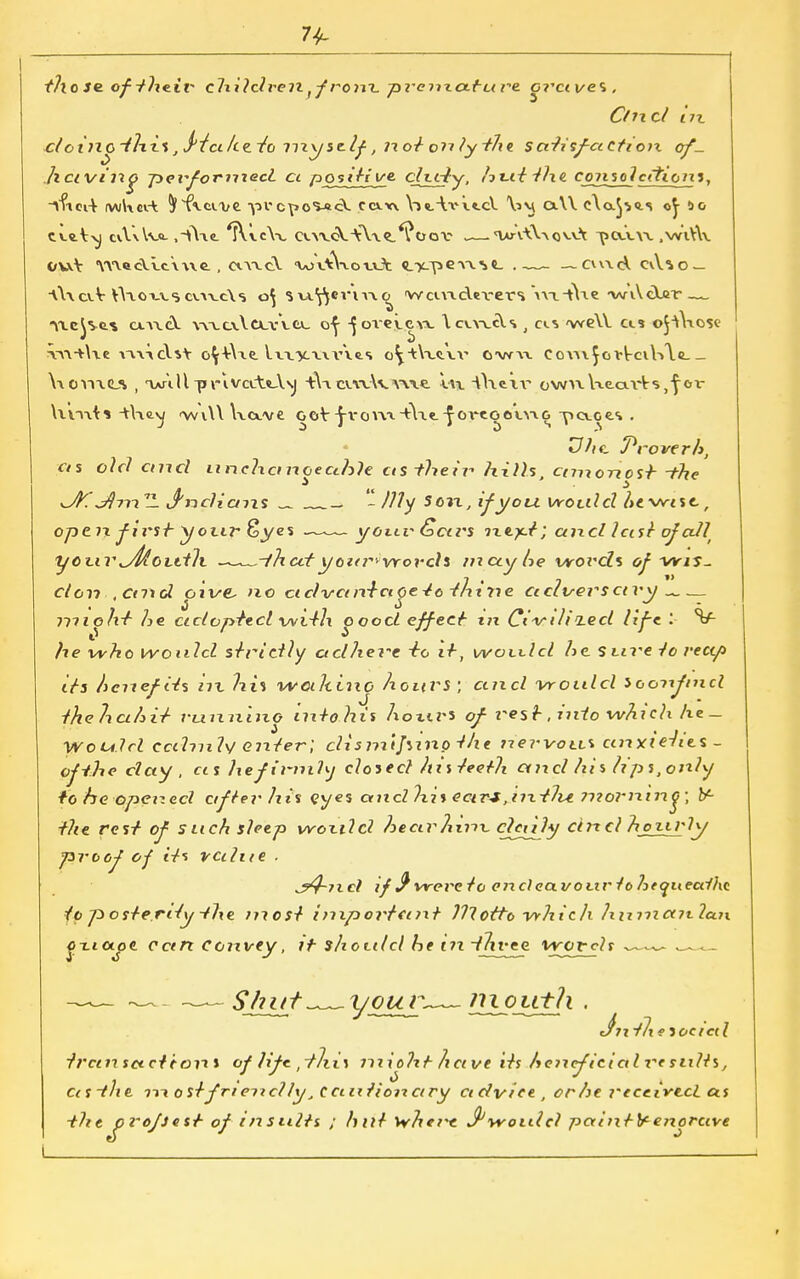 74
those of their children, from premature graves.
And in
doing this, I take to myself, not only the satisfaction of
having performed a positive duty, but the consolations,
that when & if carve proposed can be tried by all classes of so
ciety alike, the Rich and the Poor —— without pain, without
out medicine, and without expense. —— —— and also —
that thous and s of suffering wanderers in the wilder ——
nesses and wilderness of foreign lands, as well as of those
in the midst of the luxuries of their own comfortable —
homes, will privately thank me in their own hearts, for
hints they will have got from the foregoing pages.
The Proverb,
as old and unchangeable as their hills, amongst the
N. Am: Indians —— —— "My son, if you would be wise,
open first your Eyes —— your Ears next; and last of all,
your Mouth —— that your words may be words of wis-
dom, and give no advantage to thine adversary" ——
might be adopted with good effect in Civilized life: &
he who would strictly adhere to it, would be sure to reap
its benefits in his waking hours; and would soon find
the habit running into his hours of rest, into which he —
would calmly enter; dismissing the nervous anxieties -
of the day, as he firmly closed his teeth and his lips, only
to be opened after his eyes and his ears, in the morning; &
the rest of such sleep would bear him daily and hourly
proof of its value.
And if I were to endeavour to bequeathe
to posterity the most important Motto which human lan
guage can convey, it should be in three words ——
—— —— Shut —— your —— mouth.
In the social
transactions of life, this might have its beneficial results,
as the most friendly, cautionary advice, or be received as
the grossest of insults; but where I would paint & engrave